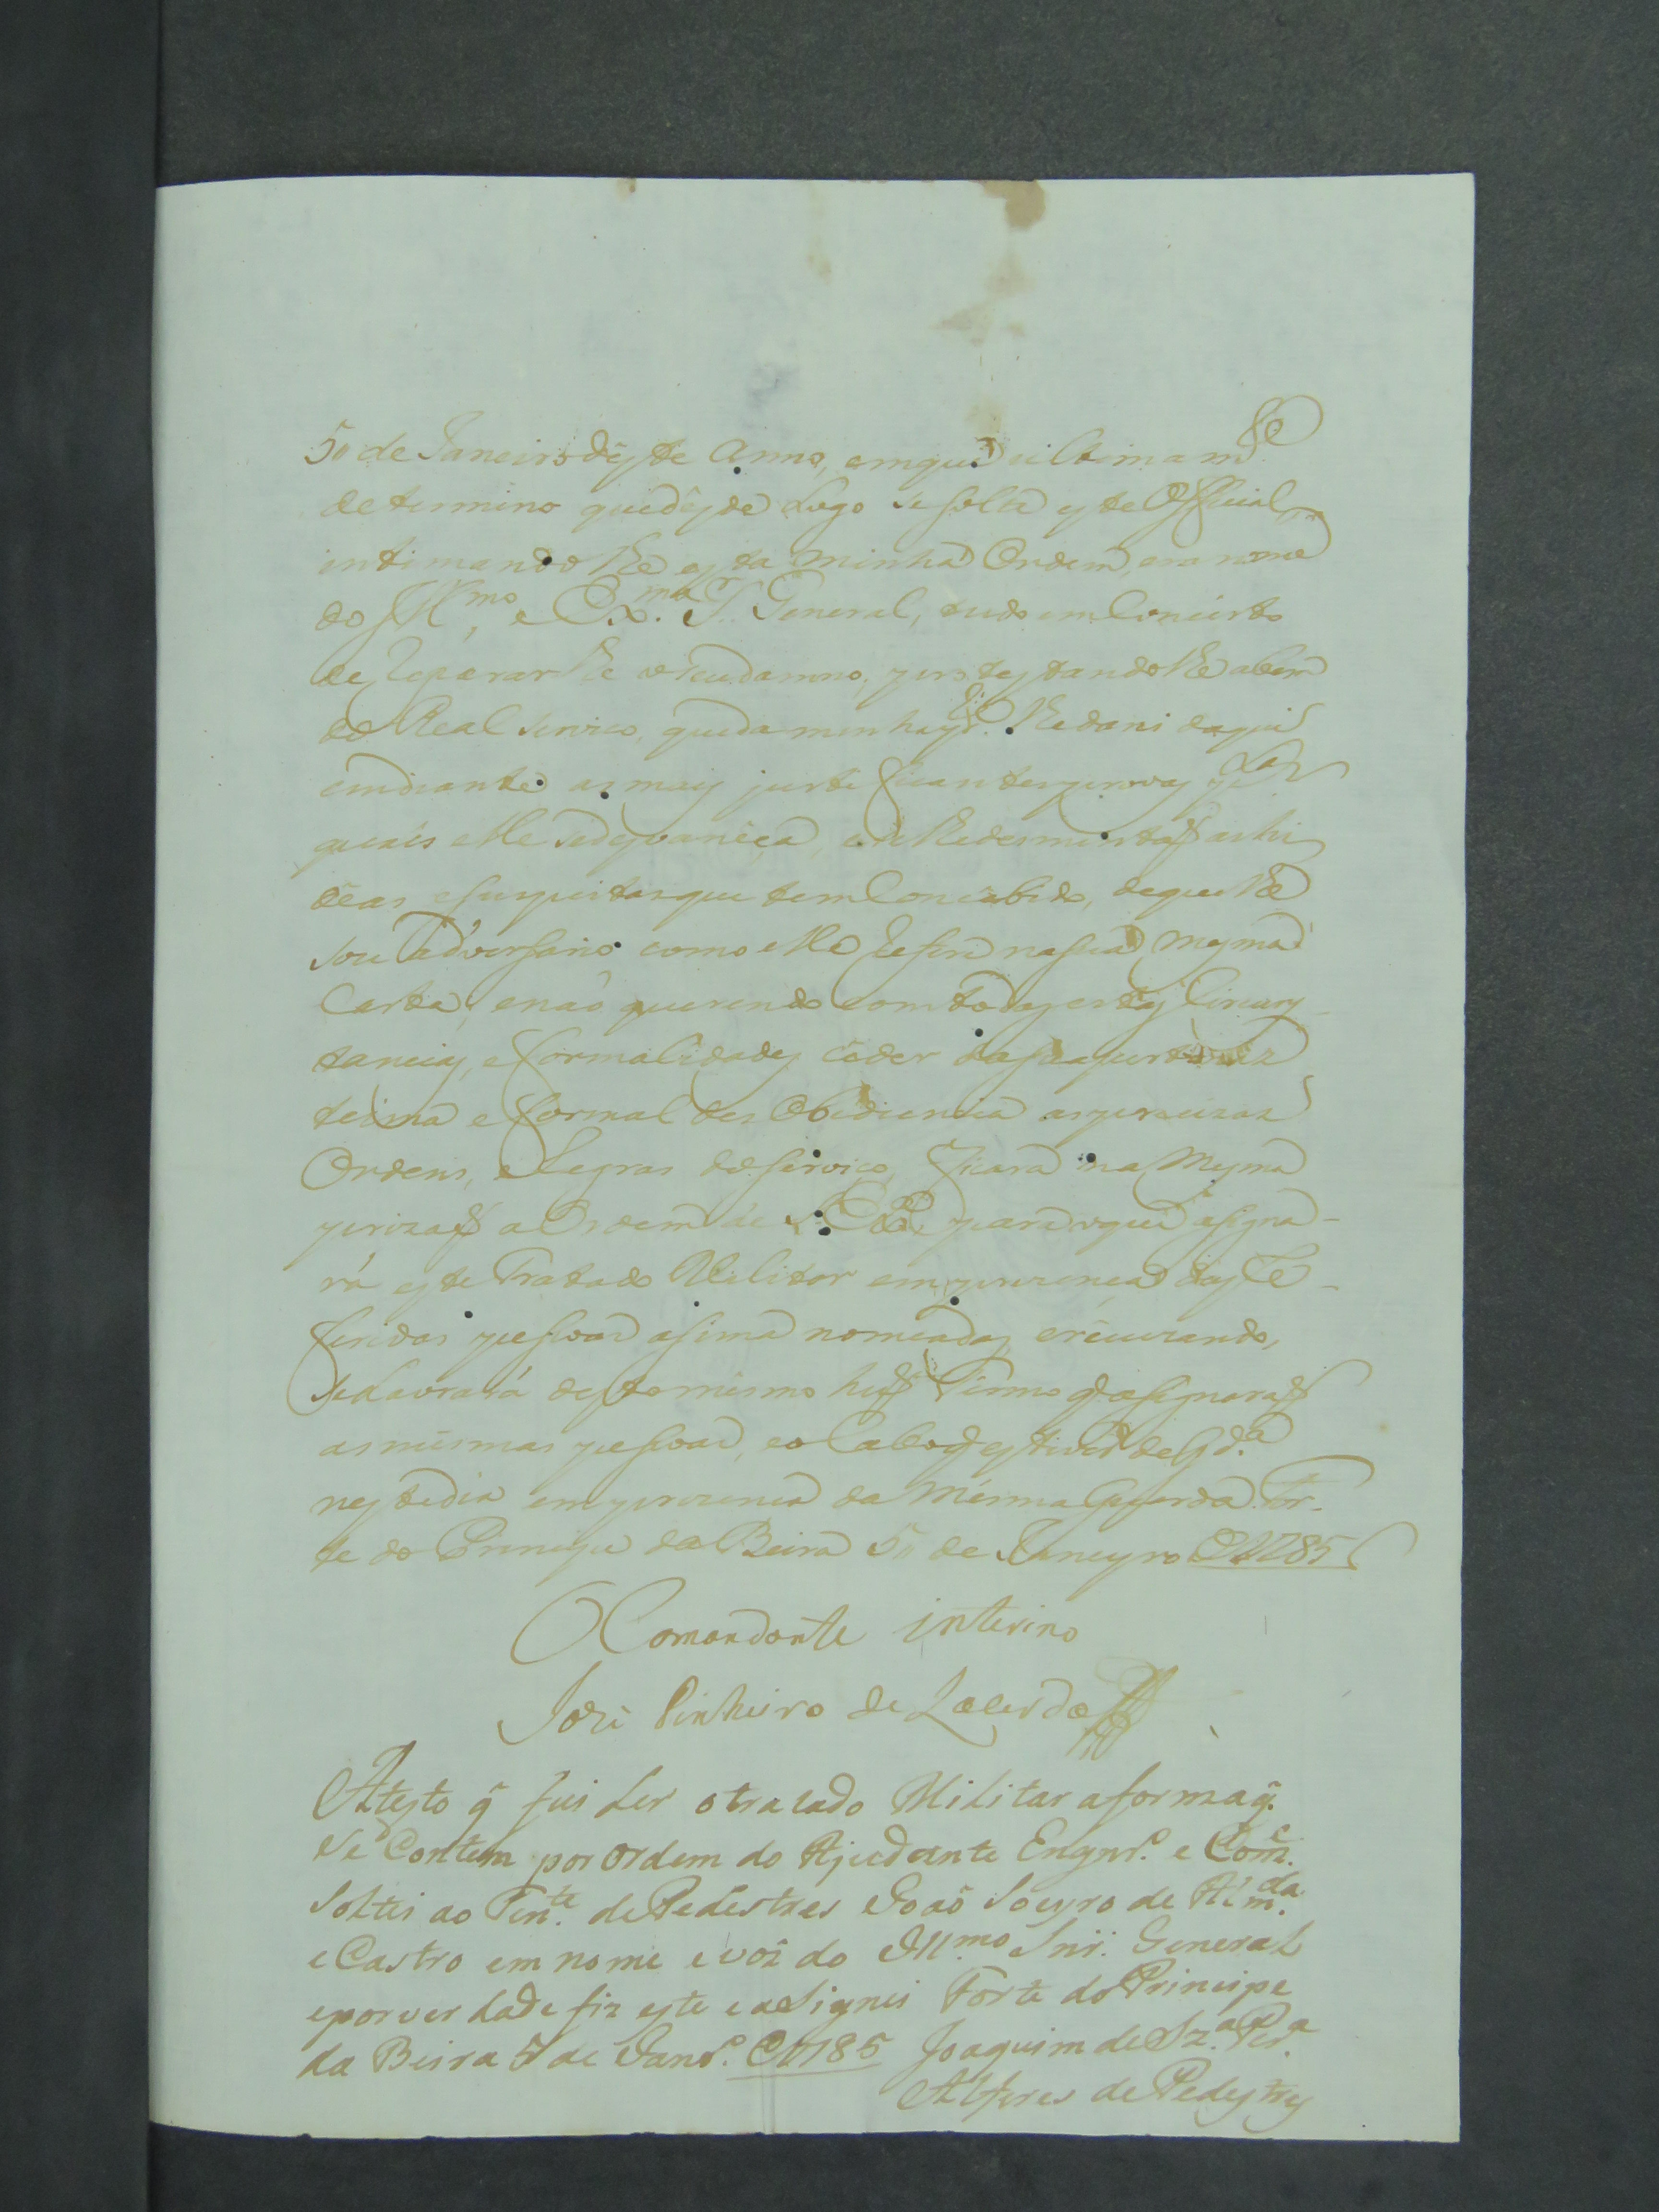 5" de Janeiro deste Anno, em que ultimam.te
determino que desde Logo se solte este Official
intimandolhe esta minha Ordem, em nome
do Ill.mo, e Ex.mo S.r General, tudo em Concerto
de Repararlhe o seu damno, protestandolhe a bem
do Real serviço, que da minha p.te lhe dari daqui
emdiante as mais justificantes provas p.las
quaes elle se desvaneça, e se lhe desmintaõ as hi
deas e suspeitas que tem Concebido, de que lhe
sou adversario como elle Refere na sua mesma
Carta, e naõ querendo com todas estas Circuns
tancias, e formalidades ceder da sua
teima e formal des Obediencia as precizas
Ordens, e Regras do serviço, ficará na Mesma
prizaõ a Ordem de S. Ex.a, para o que asigna-
rá este Tratado Militar em prezença das Re-
feridas pessoas asima nomeadas, e recuzando,
se Lavrará desta mesmo hum Termo q̃ asignaraõ
as mesmas pessoas, e o Cabo q̃ estiver de G.da
neste dia em prezença da mesma Guarda. For-
te do Principe da Beira 5" de Janeyro de 1785
O Comandante interino
Joze Pinheiro de Lacerda
Atesto q̃ fui Ler o tratado Militar a forma q̃.
se Contem por ordem do Ajudante Engnr.o e Com.e
soltei ao Ten.te de Pedestres Joaõ Soeyro de Alm.da
e Castro em nome e voz do Ill.mo Snr. General
e por verdade fiz este e asignei Forte do Principe
da Beira 5 de Janr.o de 1785 Joaquim de Sz.a Per.a
Alferes de Pedestres